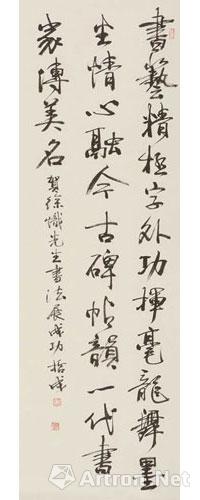 書藝精極字外功揮毫龍舞墨
生情心融今古碑帖韻一代書
家傳美名
賀徐熾先生書法展成功 哲成
Artron.Net